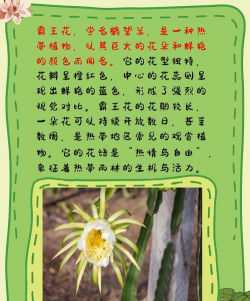 霸王花，学名鹤望兰，是一种热
带植物，以其巨大的花朵和鲜艳
的颜色而闻名。它的花型独特，
花瓣呈橙红色，中心的花蕊则呈
现出鲜艳的蓝色，形成了强烈的
视觉对比。霸王花的花期较长，
一朵花可以持续开放数日，甚至
数周，是热带地区常见的观赏植
物。它的花语是“热情与自由”，
象征着热带雨林的生机与活力。